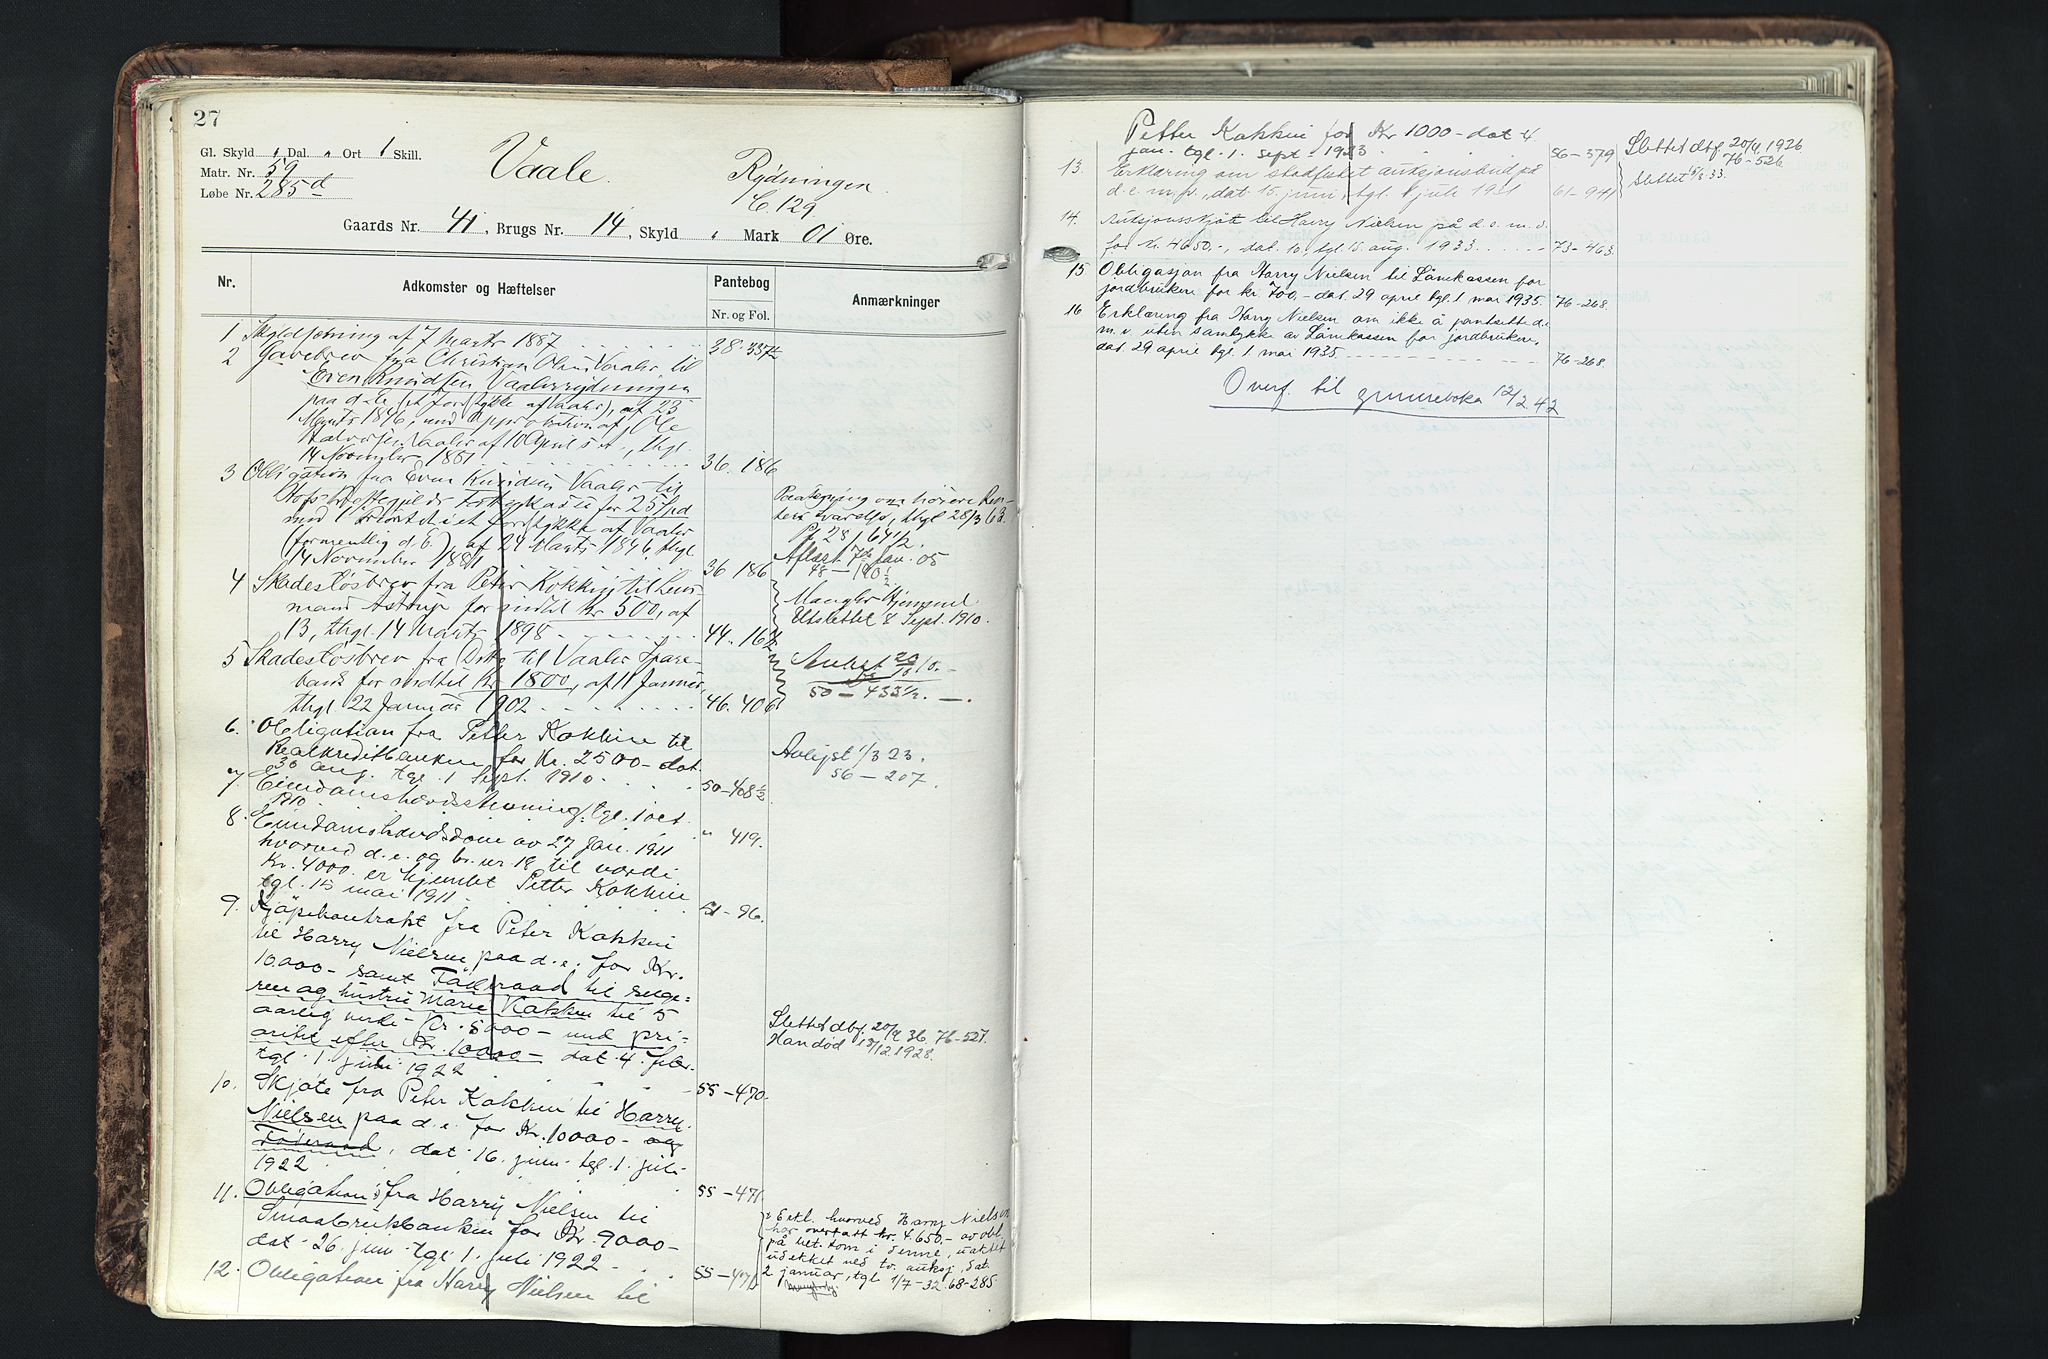 27
Gl. Skyld " Dal. " Ort 1 Skill.
Matr. Nr. 59
Løbe Nr. 285d
Vaale.
Rydningen
C. 129
Gaards Nr. 41, Brugs Nr. 14, Skyld " Mark 01 Øre.
Nr.
Adkomster og Hæftelser
Pantebog
Nr. og Fol.
Anmærkninger
1 Skyldsetning af 7 Marts 1887 38. 337½
2 Gavebrev fra Christian Olsen Vaaler til
Even Knudsen Vaalerrydningen
paa d. E. (et forstykke af Vaaler), af 23
Marts 1846, med Approbation af Ole
Halvorsen Vaaler af 10 April s. A., thgl.
14 November 1881 36. 186
3 Obligation fra Even Knudsen Vaaler til
for 25 Spd
med 1 Prioritet i et forstykke af Vaaler
(formentlig d. E.) af 24 Marts 1846, thgl.
14 November 1881 36 186
Paategning om høiere Ren-
tesvarelse, thgl 28/3 63.
Pr. 28, 641½.
Aflæst 7de Jan. 05
48 — 190½
4 Skadesløsbrev fra Peter Kokkin til Lens-
mand Astrup for indtil Kr 500, af
13, thgl. 14 Marts 1898 44. 16½
Mangler Hjemmel.
Udslettet 8 Sept. 1910.
5 Skadesløsbrev fra Do til Vaaler Spare-
bank for indtil Kr 1800, af 11 Januar,
thgl 22 Januar 1902 46. 406
Avlæst 20/10 10.
50 — 433½.
6. Obligation fra Petter Kokkin til
Realkreditbanken for Kr. 2500 - dat.
30 aug. tgl. 1 Sept. 1910. 50-408½
Avlyst 1/3 23.
56 — 207.
7. Eiendomshævdsstevning, tgl. 1 oct.
1910. " 419.
8. Eiendomshævdsdom av 27 jan. 1911
hvorved d. e. og br. nr 19 til værdi
Kr. 4000. er hjemlet Petter Kokkin
tgl. 15 mai 1911. 51-96.
9. Kjøpekontrakt fra Peter Kokkin
til Harry Nielsen paa d. e. for Kr.
10.000 - samt Føderaad til selge-
ren og hustru Marie Kokkin til 5
aarlig verdi - Kr. 5000 - med pri-
oritet efter Kr. 10000 - dat 4. febr.
tgl. 1. juli 1922 55-470.
Slettet dbf. 20/4 36. 76-527.
Han død 13/12 1928.
10. Skjøte fra Peter Kokkin til Harry
Nielsen paa d. e. for Kr. 10000 - og
Føderaad, dat. 16. juni - tgl. 1. juli
1922 55-471.
11. Obligation fra Harry Nielsen til
Smaabrukbanken for Kr. 9000 -
dat. 26. juni - tgl. 1. juli 1922
Etl. hvorved Harry Nielsen
har overtatt kr. 4.650.- av obl.
på bet. som i denne, uaktet
udekket ved tv. auksj., dat.
2 januar, tgl 1/7-32. 68-285.
12. Obligation fra Harry Nielsen til
Petter Kokkin for Kr 1000 - dat 4
jan. tgl. 1. sept. 1923 56-379
Slettet dbf 20/4 1926
76-526
13. Erklæring om stadfestet auksjonsbud på
d. e. m. fv., dat 15. juni, tgl. 1 juli 1931 61-941
slettet 15/8 33.
14. Auksjonsskjøte til Harry Nielsen på d. e. m. v.
for kr. 4650.-, dat. 10. tgl. 15. aug. 1933 73-463.
15 Obligasjon fra Harry Nielsen til Lånekassen for
jordbrukere for kr. 700.- dat. 29 april tgl. 1 mai 1935. 76-268.
16 Erklæring fra Harry Nielsen om ikke å pantsette d. e.
m. v. uten samtykke av Lånekassen for jordbrukere,
dat. 29 april tgl. 1 mai 1935 76-268.
Overf. til grunneboka 12/2. 42